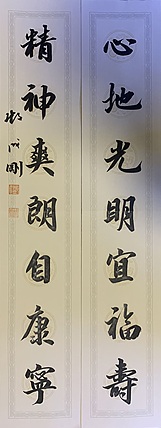 心地光明宜福壽
精神爽朗自康寧